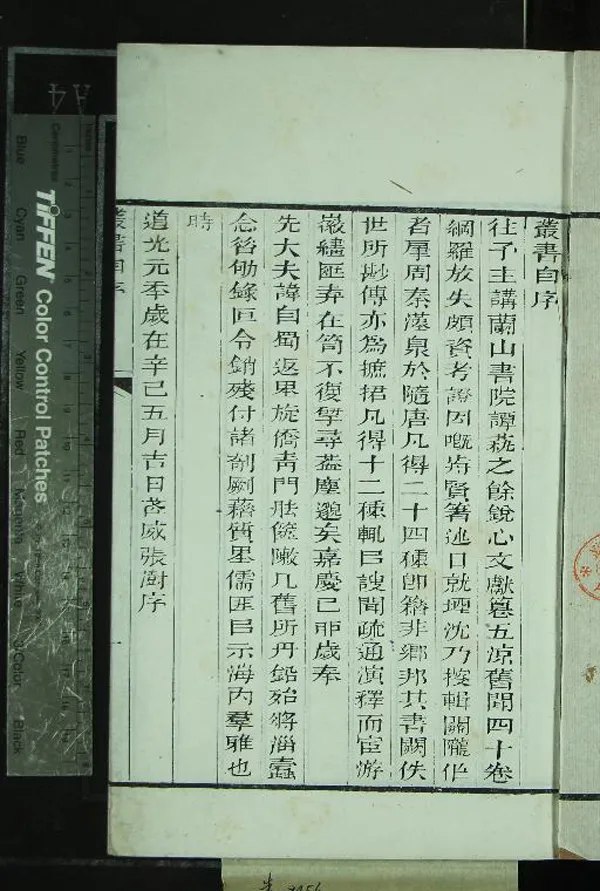 叢書自序
往予主講蘭山書院譚蓺之餘銳心文獻篹五涼舊聞四十卷
網羅放失頗資考證因嘅歬賢箸述日就堙沈乃搜輯關隴作
者肇周秦漢泉於隨唐凡得二十四種卽籍非鄉邦其書闕佚
世所尟傳亦爲摭捃凡得十二種輒㠯謏聞疏通演釋而宦游
嶶繣匧弆在笥不復挈尋葢塵邈矣嘉慶己卯歲奉
先大夫諱自蜀返里旋僑靑門胠篋𨻶几舊所丹鉛殆將湽蠹
念昝勉錄叵令銷殘付諸剞劂藉質里儒匪㠯示海內羣雅也
時
道光元年歲在辛巳五月吉日武威張澍序
叢書自序
TIFFEN Color Control Patches
Blue
Cyan
Green
Yellow
Red
Magenta
White
3/Color
Black
A4